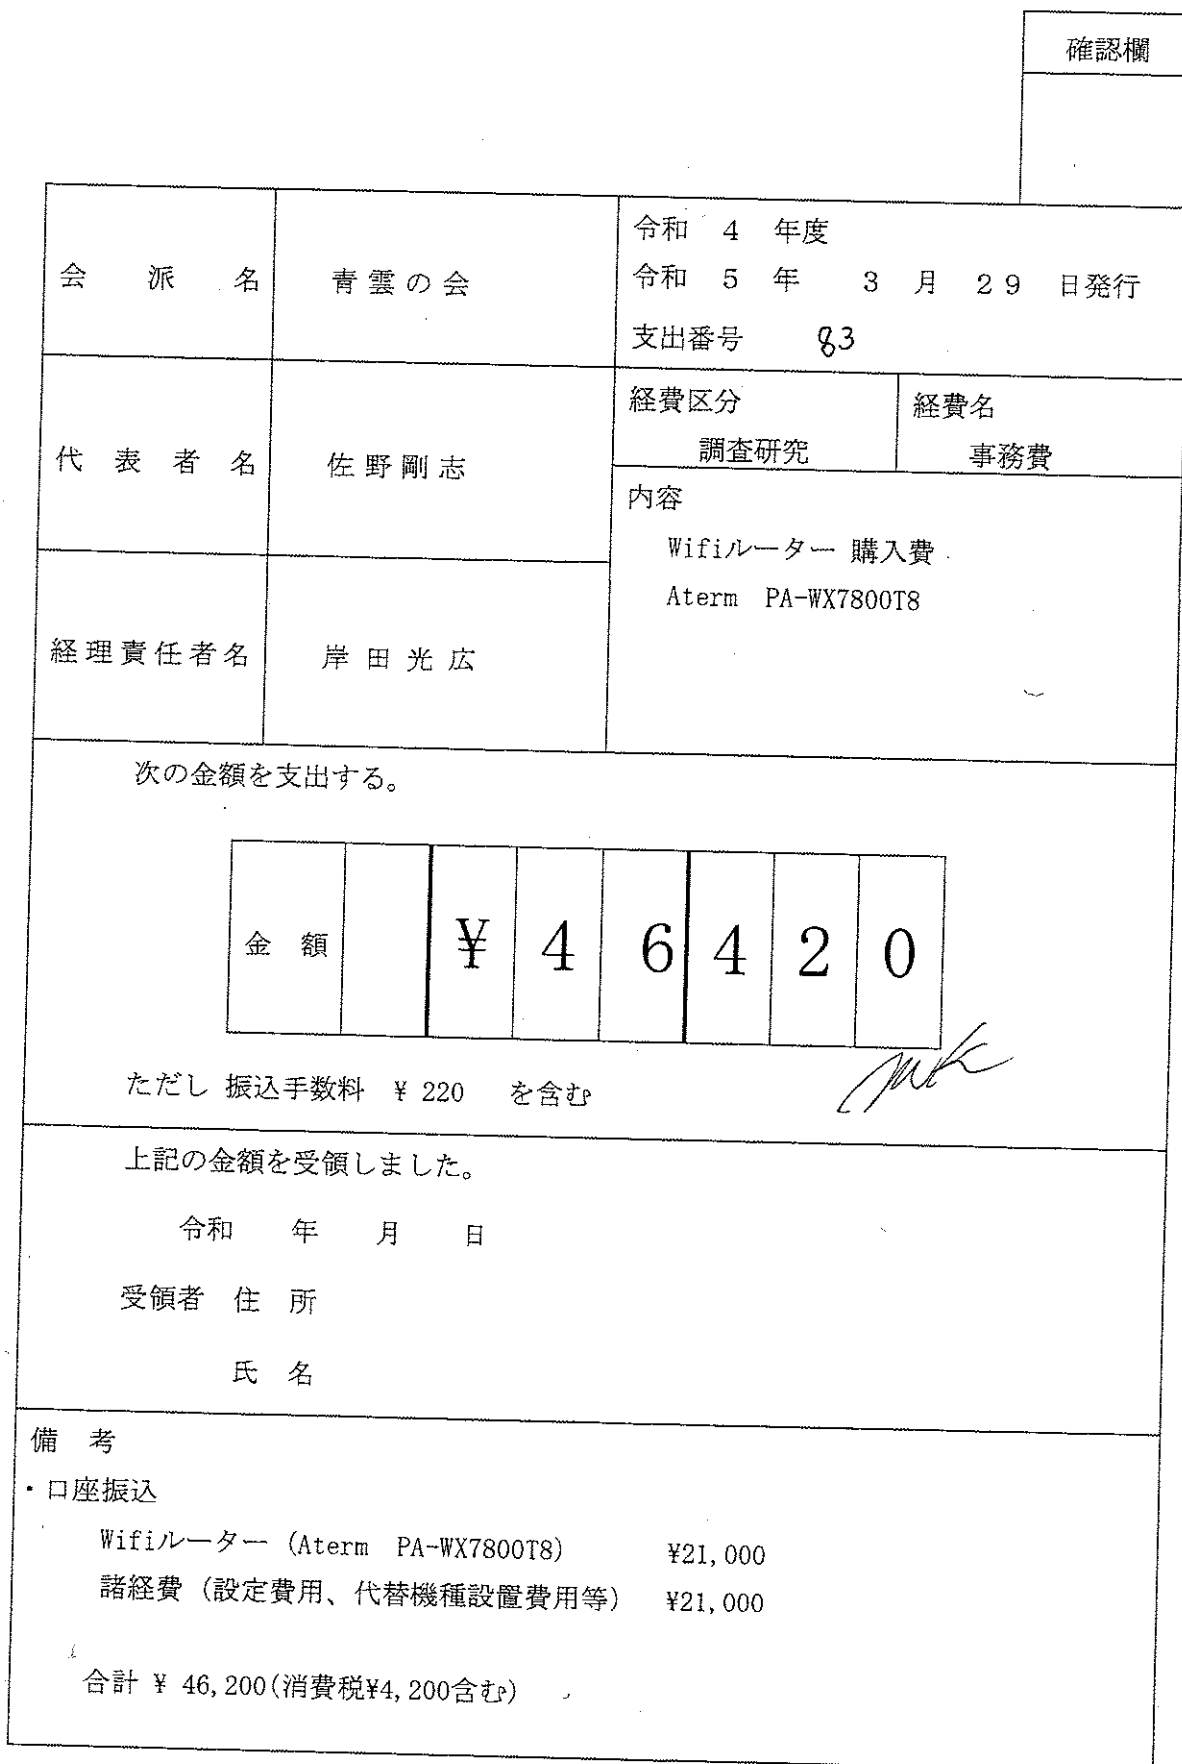 確認欄
会派名
青雲の会
令和 4 年度
令和 5 年 3 月 29 日発行
支出番号 83
代表者名
佐野剛志
経費区分
調査研究
経費名
事務費
内容
Wifiルーター 購入費
Aterm PA-WX7800T8
経理責任者名
岸田光広
次の金額を支出する。
金額 ¥46420
ただし 振込手数料 ¥ 220 を含む
上記の金額を受領しました。
令和 年 月 日
受領者 住所
氏名
備考
・口座振込
Wifiルーター (Aterm PA-WX7800T8) ¥21,000
諸経費 (設定費用、代替機種設置費用等) ¥21,000
合計 ¥ 46,200(消費税¥4,200含む)